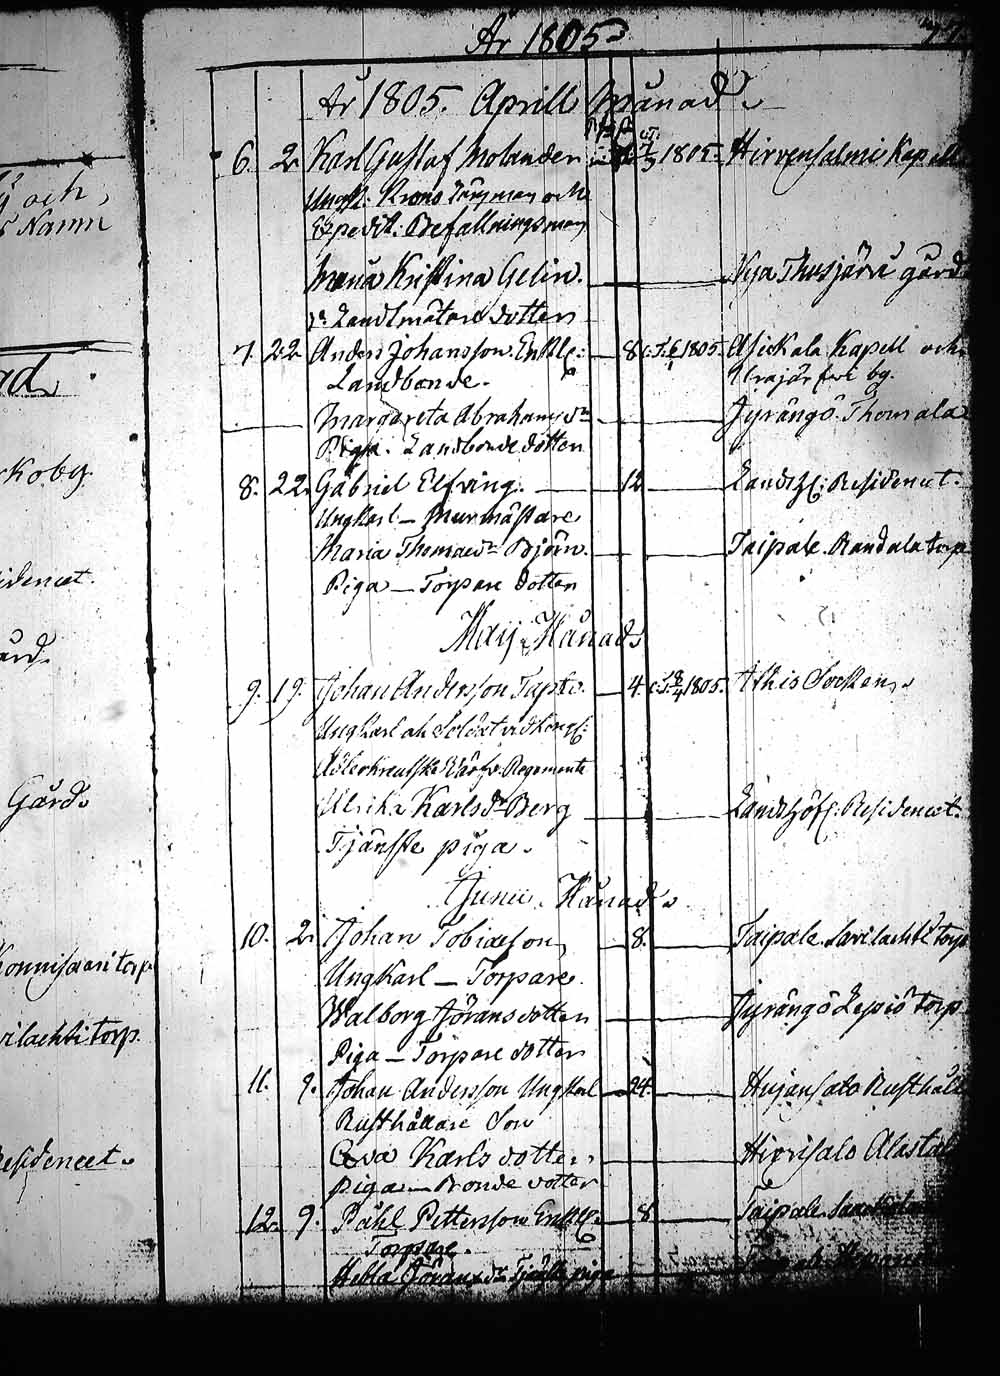 År 1805
År 1805. Aprill Månad.
6. 2. Karl Gustaf Molander 1805 Hirvensalmi Kapell
Ungk. Krono Länsman och
Expedit: Befallningsman
Maria Kristina Gelin. Nya Thusjärvi gård
Landtmätare dotter
7. 22 Anders Johansson Enkl: 8 1805 Asickala Kapell och
Landbonde. Urajärfvi by.
Margareta Abrahamsdr Jyrängö Thomala
Piga. Landbonde dotter
8. 22. Gabriel Elfving. 12 Landth: Residencet.
Ungkarl – Murmästare
Maria Thomaedr Björn. Taipale Randala torp
Piga – Torpare dotter
Maij Månad
9. 19. Johan Andersson Tapto. 4. 1805. Athis Socken.
Ungkarl och Soldat vid Kongl:
Adlerkreutzske Värfv. Regemente
Ulrika Karlsdr Berg Landshöf: Residencet.
Tjänste piga.
Junii Månad.
10. 2. Johan Tobiaeson 8. Taipale Savilachti torp
Ungkarl – Torpare.
Walborg Jöransdotter Jyrängö Lepiö torp
Piga – Torpare dotter
11. 9. Johan Andersson Ungkarl 24. Hujansalo Rusthåll
Rusthållare Son
Eva Karlsdotter Hirvisalo Alastalo
piga – Bonde dotter
12. 9. Påhl Pettersson Enkl: 8 Taipale
Torpare.
Hebla Jöransdr Tjänste piga
och
Namn
ad
koby
idencet.
ård.
Gård.
Kommissarii torp
vilachti torp.
Residencet.